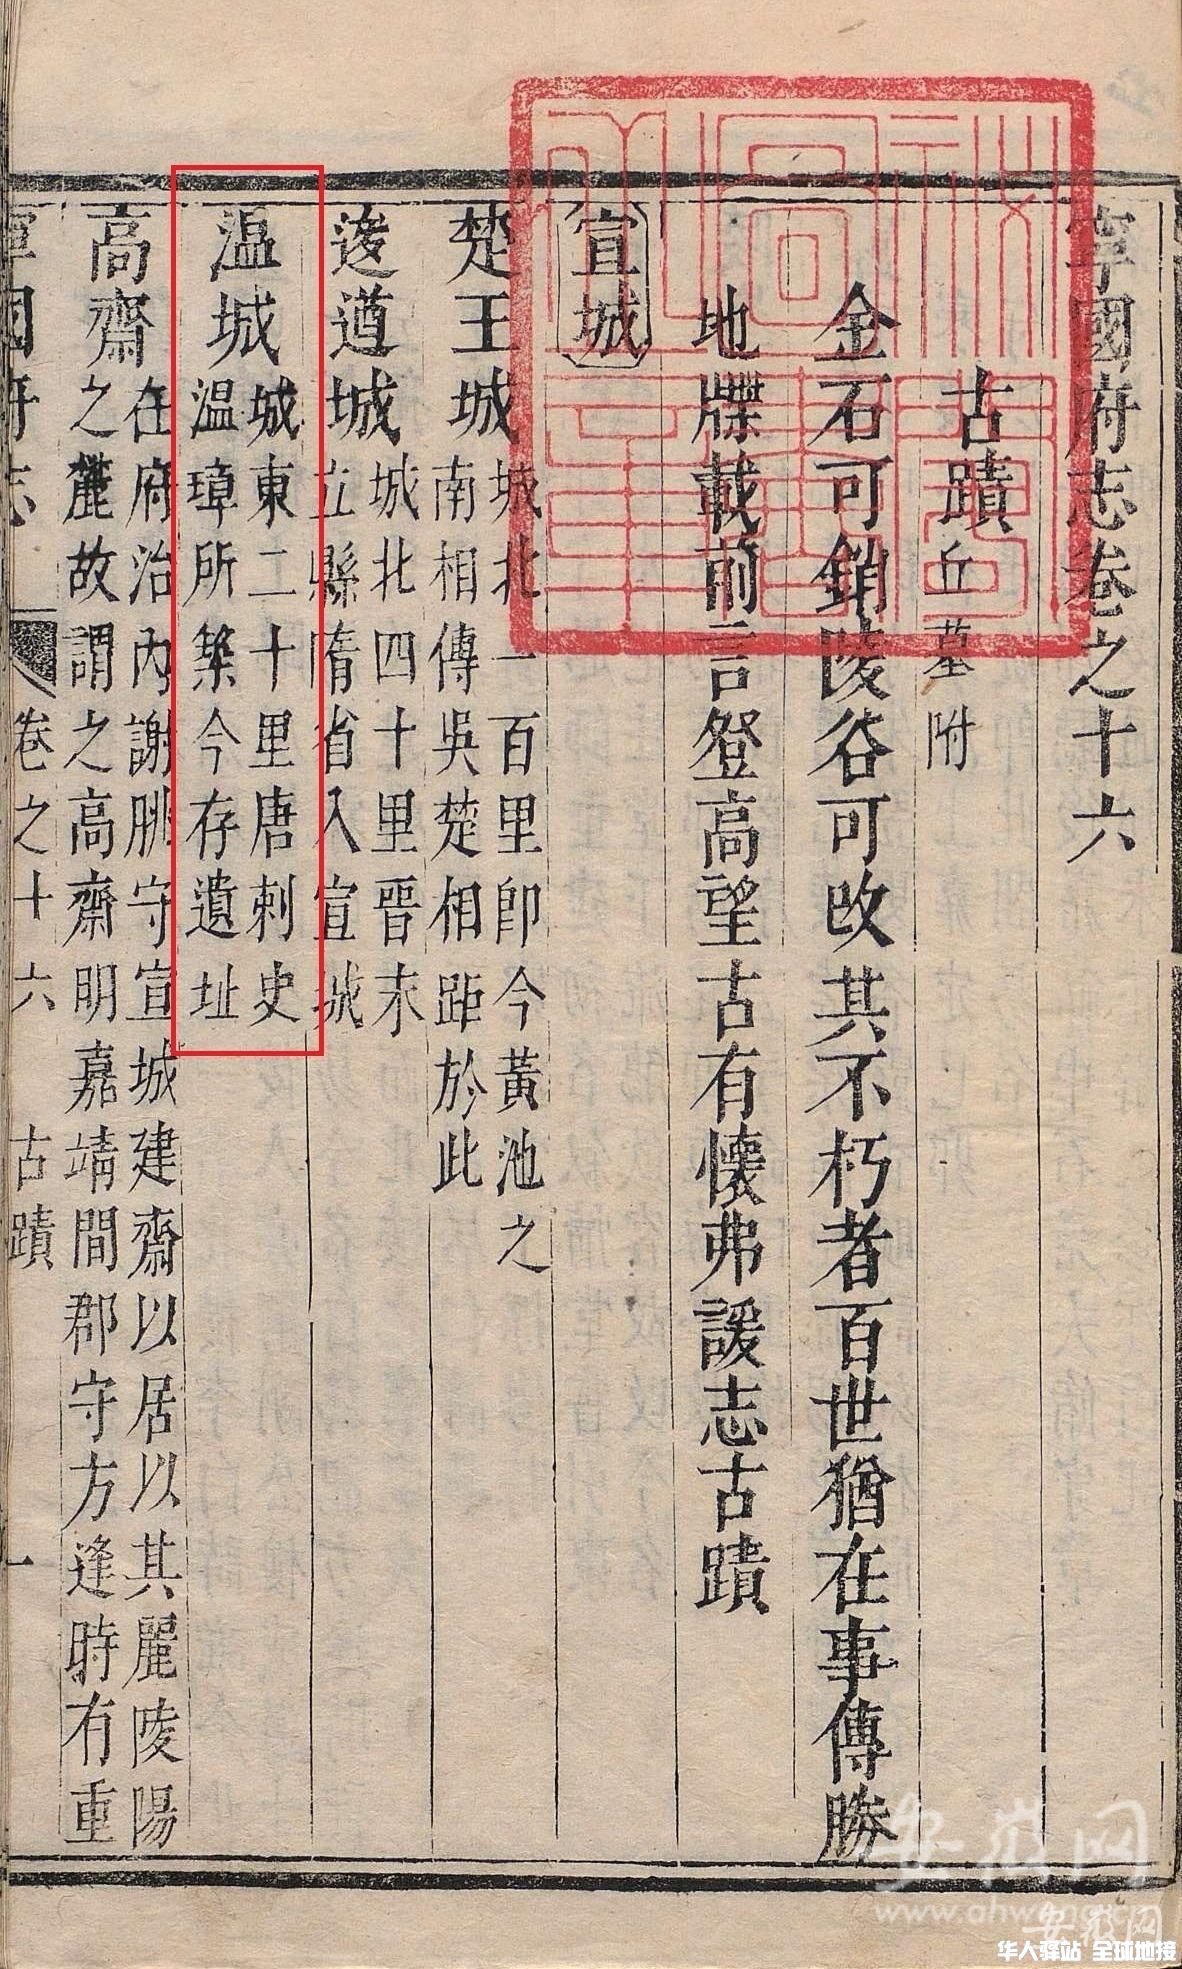 寧國府志卷之十六
古蹟丘墓附
金石可銷陵谷可改其不朽者百世猶在事傳勝
地牒載前言登高望古有懷弗諼志古蹟
宣城
楚王城城北一百里即今黃池之
南相傳吳楚相距於此
逡遒城城北四十里晉末
立縣隋省入宣城
温城城東二十里唐刺史
温璋所築今存遺址
高齋在府治內謝朓守宣城建齋以居以其麗陵陽
之麓故謂之高齋明嘉靖間郡守方逢時有重
寧國府志
卷之十六
古蹟
一
安徽网
www.ahwang.cn
安徽网
华人驿站 全球地接